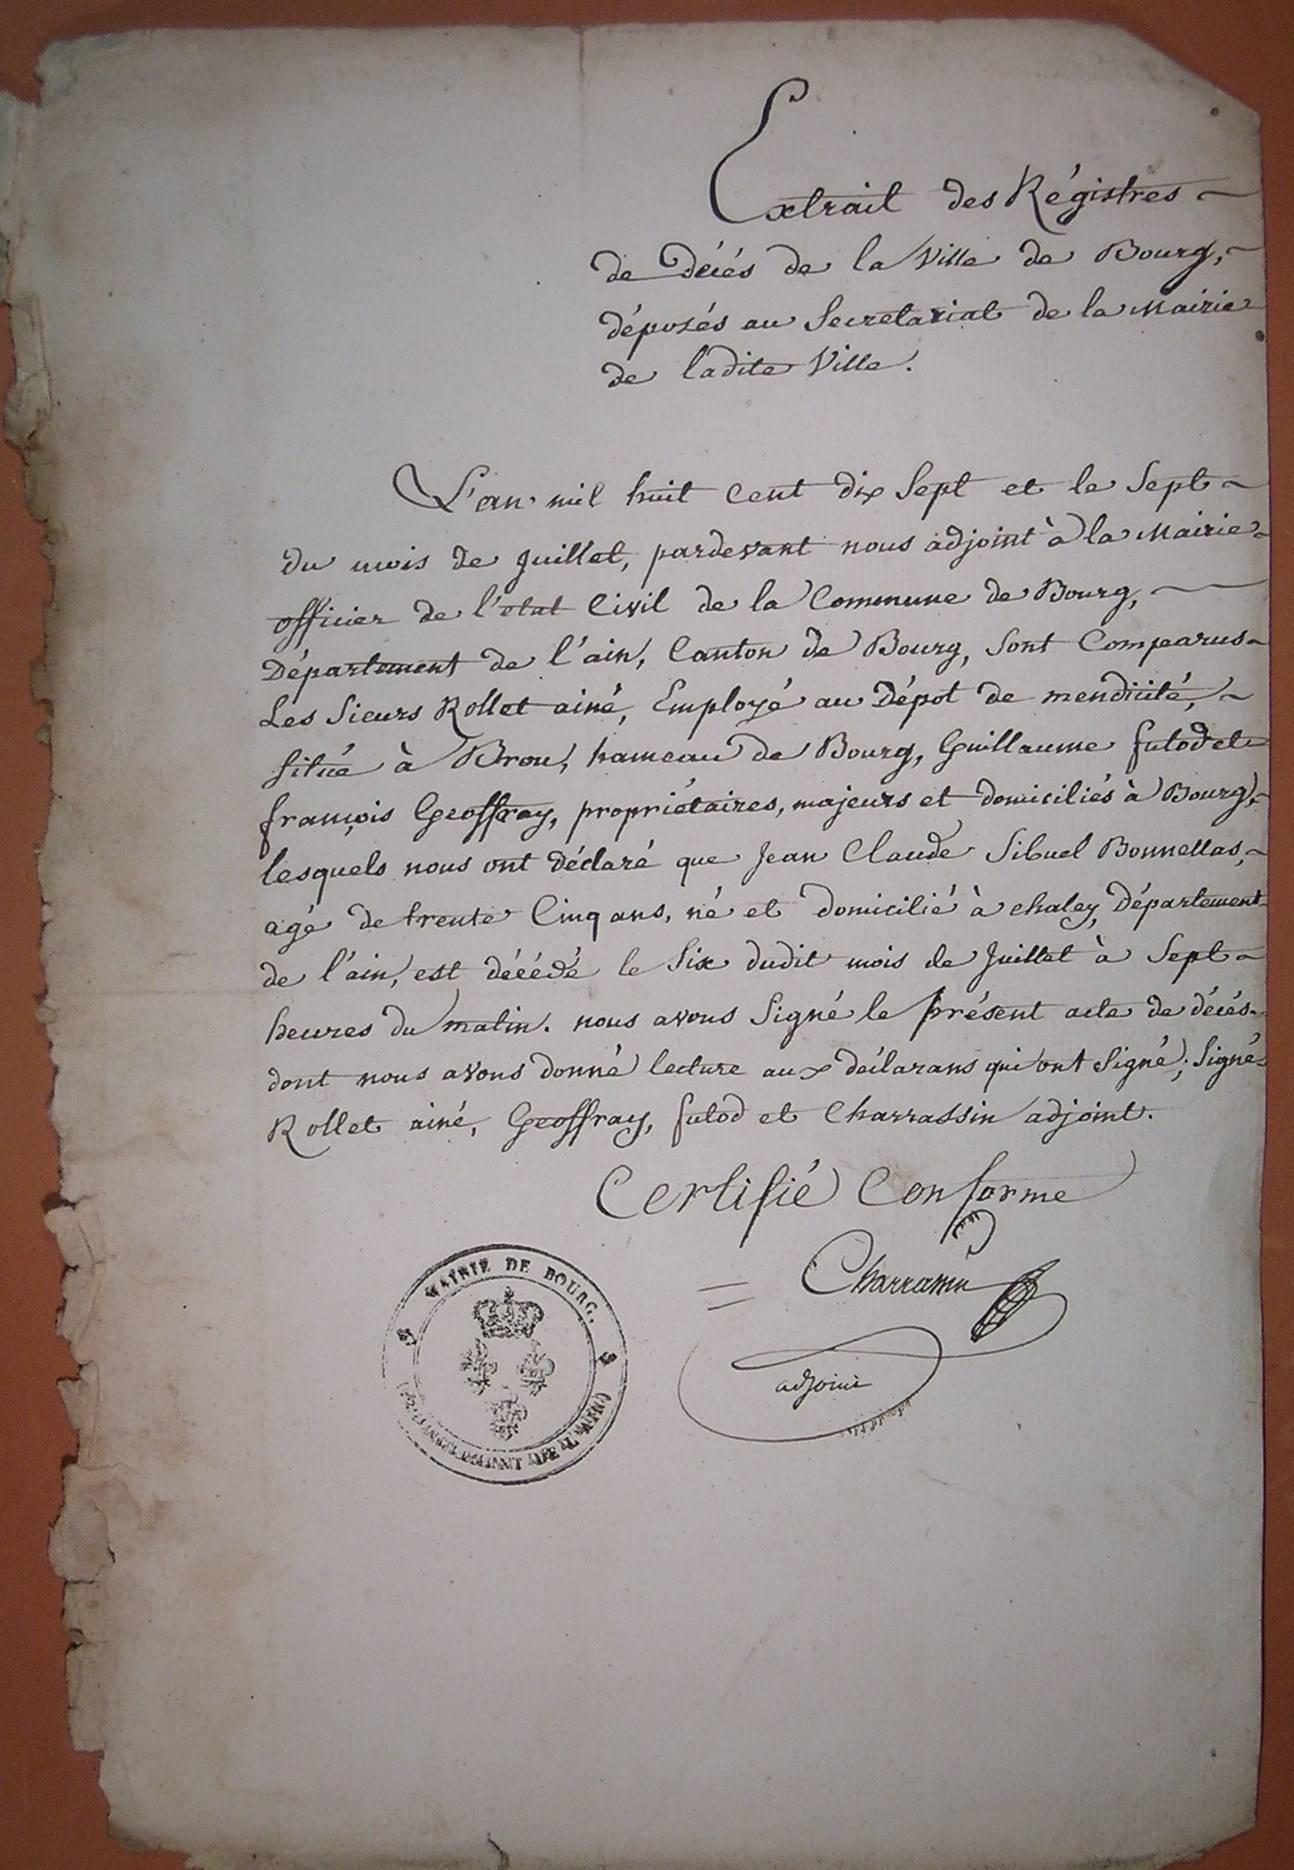 Extrait des Régistres
de décés de la Ville de Bourg,
déposés au Secretariat de la Mairie
de ladite Ville.
L'an mil huit Cent dix Sept et le Sept
du mois de Juillet, pardevant nous adjoint à la Mairie
officier de l'etat Civil de la Commune de Bourg,
Département de l'ain, Canton de Bourg, Sont Comparus
Les Sieurs Rollet ainé, Employé au Dépot de mendicité,
Situé à Brou, hameau de Bourg, Guillaume futod et
françois Geoffray, propriétaires, majeurs et domiciliés à Bourg,
lesquels nous ont déclaré que Jean Claude Sibuel Bonnellas,
agé de trente Cinq ans, né et domicilié à chaley, Département
de l'ain, est décédé le Six dudit mois de Juillet à Sept
heures du matin. nous avons Signé le présent acte de décés
dont nous avons donné lecture aux déclarans qui ont Signé; Signé
Rollet ainé, Geoffray, futod et Charrassin adjoint.
Certifié Conforme
Charrassin
adjoint
MAIRIE DE BOURG.
DE L'AIN